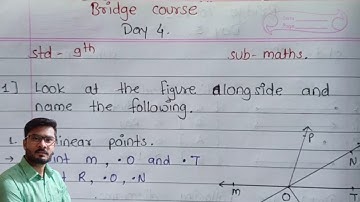 Bridge course
Day 4.
std - 9th
sub- maths.
1] Look at the figure alongside and
name the following.
1. linear points.
→ int m, •O and •T
t R, •O, •N
P
N
m
O
T